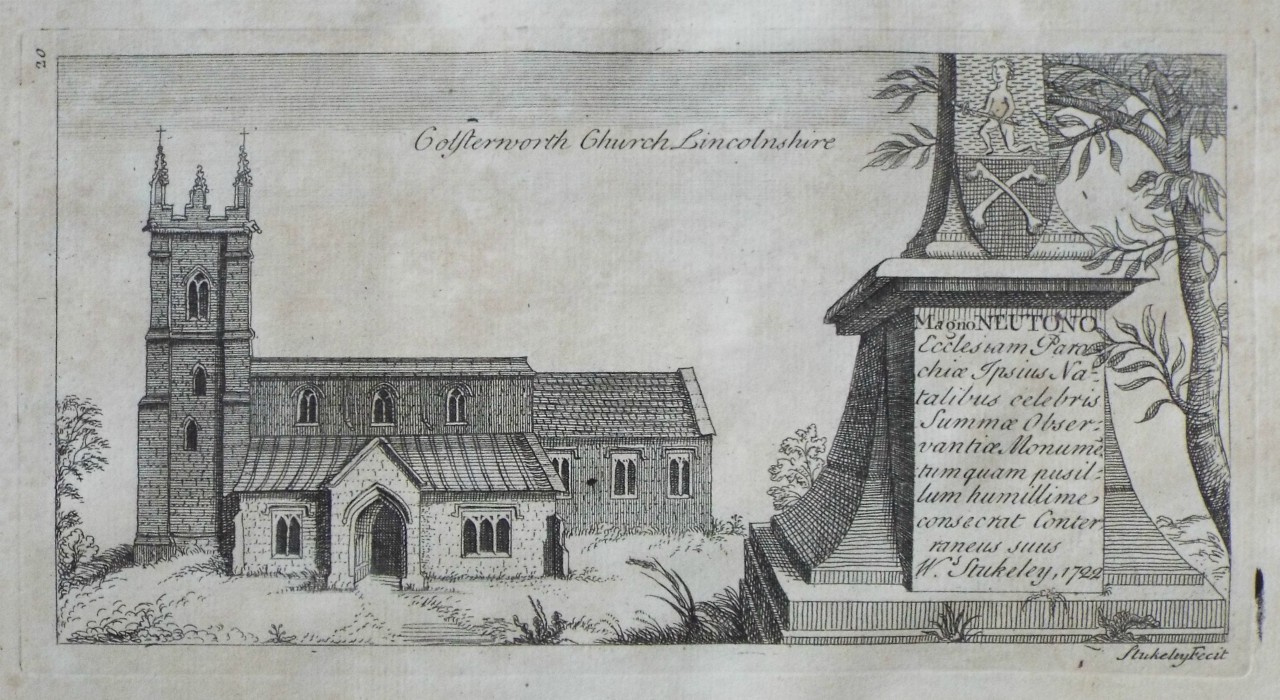 20
Colsterworth Church Lincolnshire
Magno NEUTONO
Ecclesiam Paro-
chiæ Ipsius Na-
talibus celebris
Summæ Obser-
vantiæ Monumē
tum quam pusil-
lum humillime
consecrat Conter
raneus suus
Wᵈ. Stukeley, 1722
Stukeley Fecit